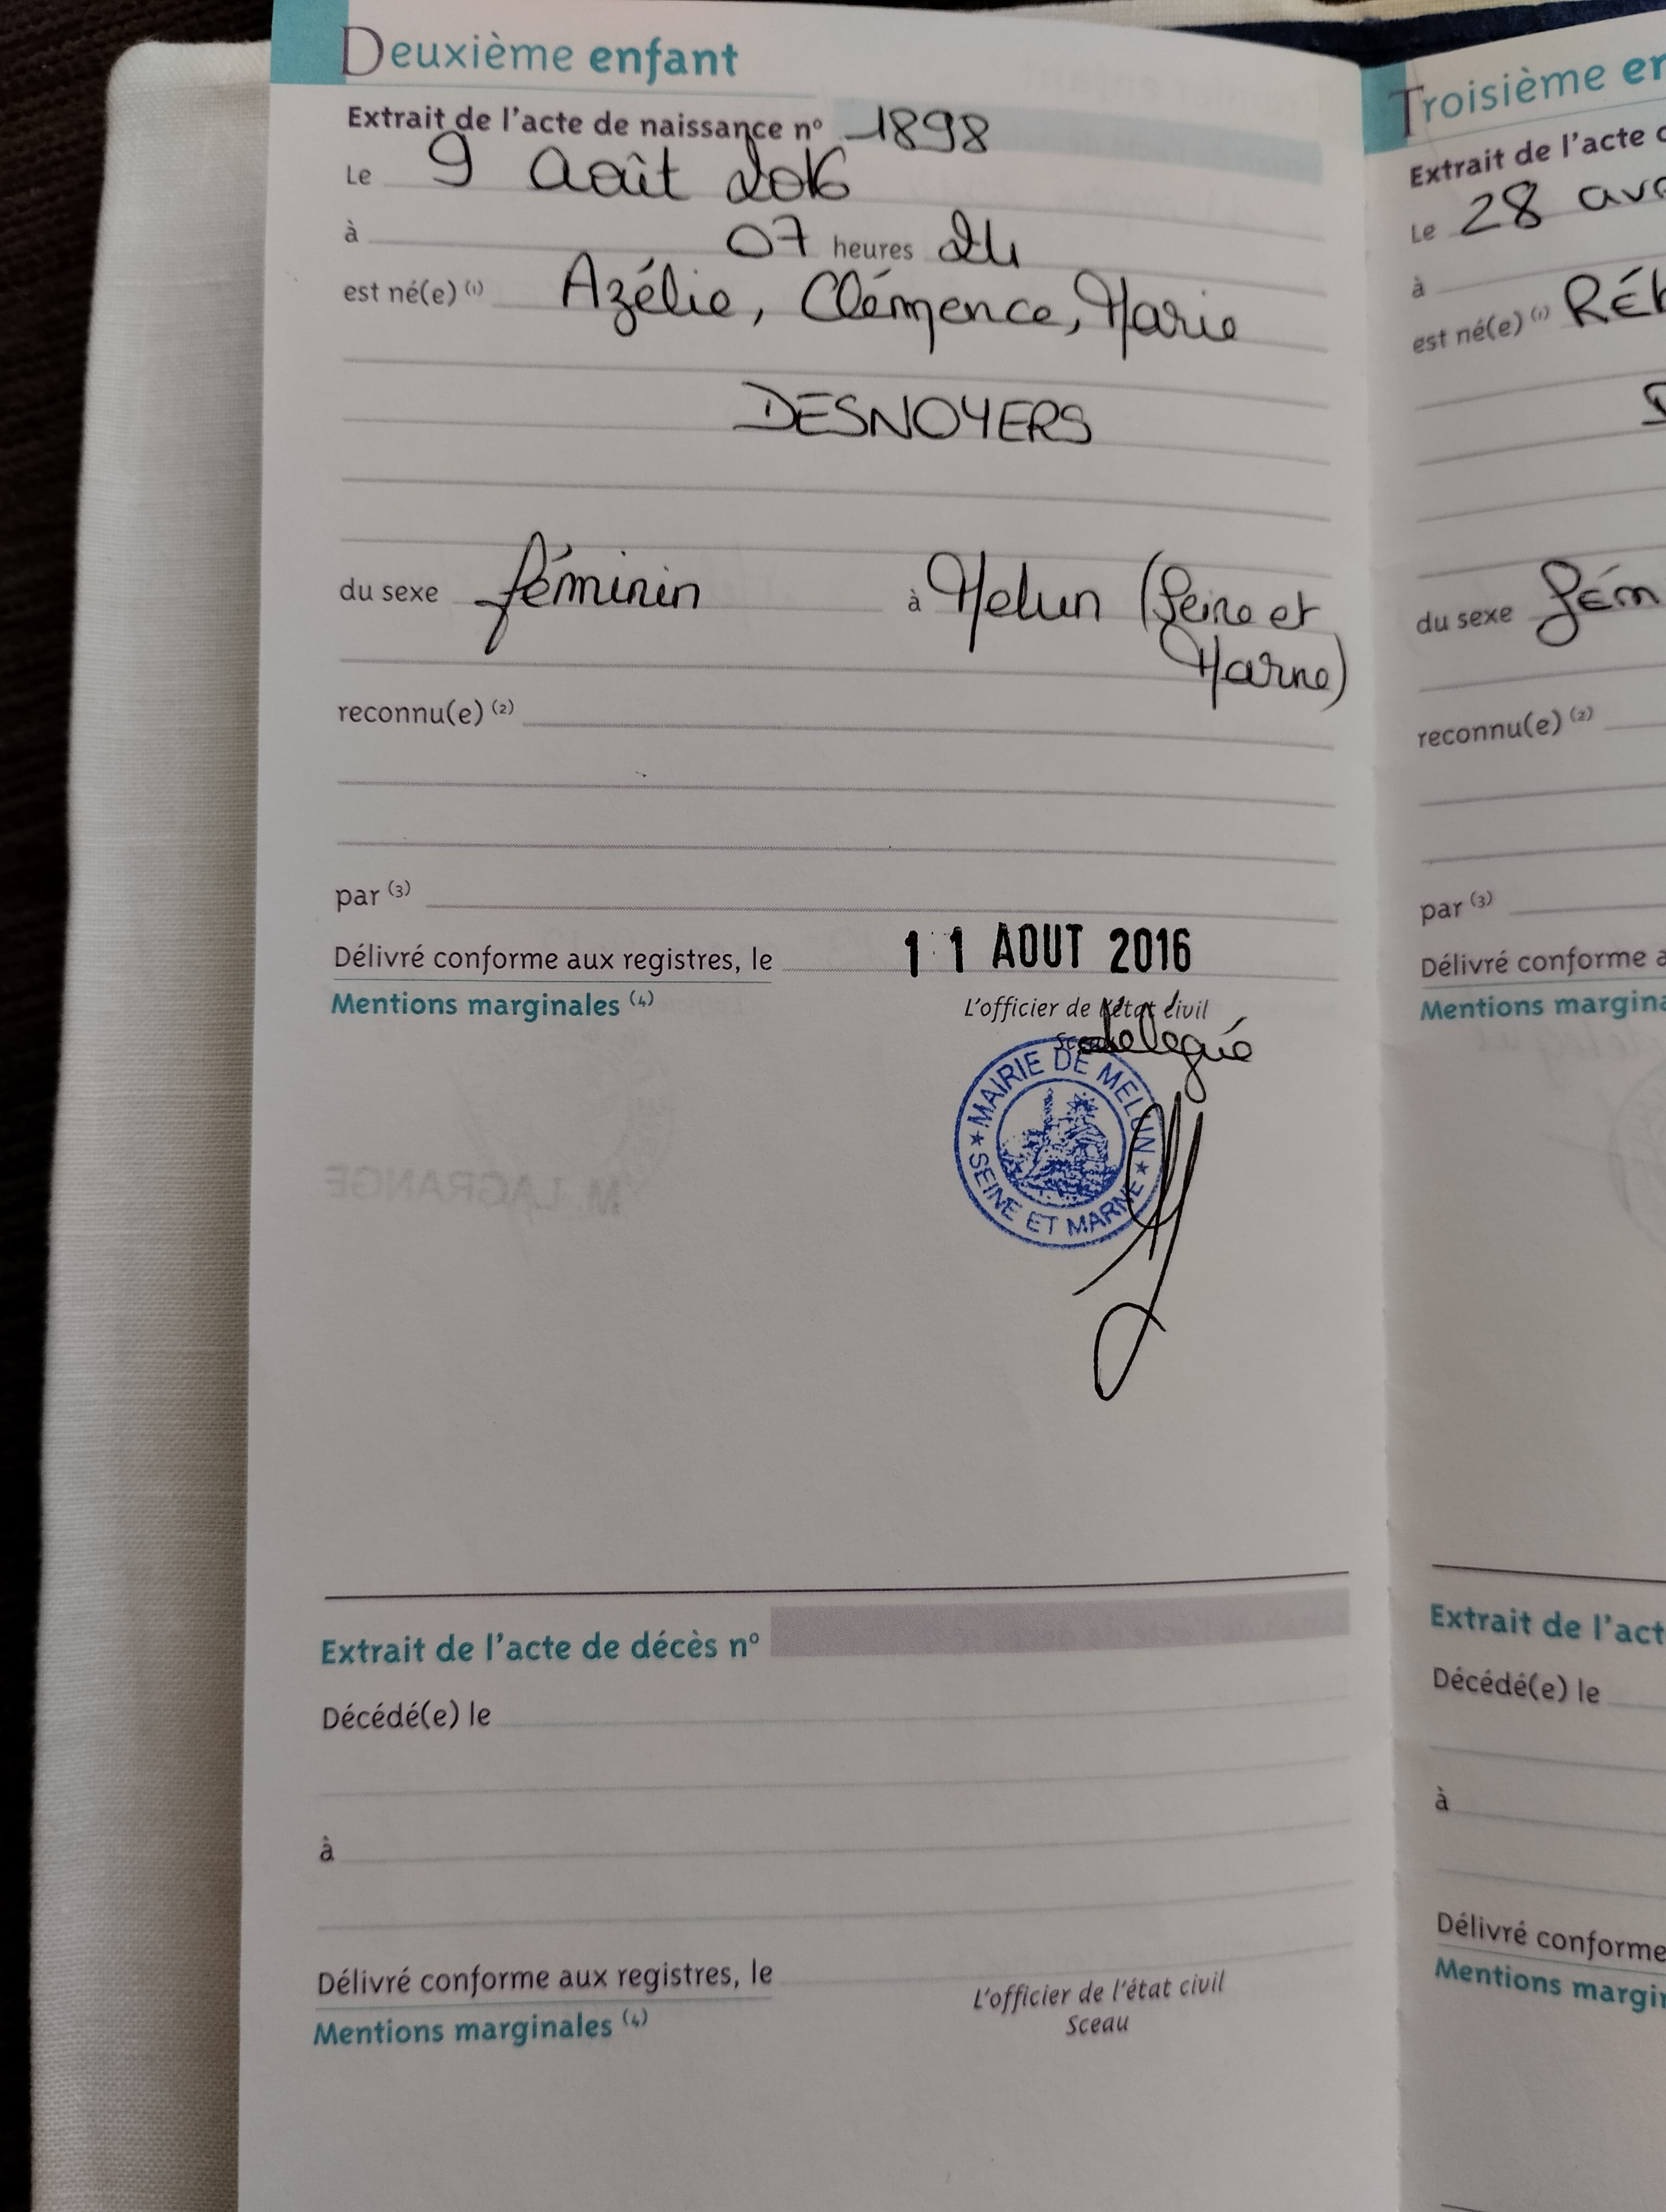 Deuxième enfant
Extrait de l'acte de naissance n° 1898
Le 9 Août 2016
à 07 heures 24
est né(e) (1) Azélie, Clémence, Marie
DESNOYERS
du sexe féminin à Melun (Seine et
Marne)
reconnu(e) (2)
par (3)
Délivré conforme aux registres, le 11 AOUT 2016
Mentions marginales (4)
L'officier de l'état civil
délégué
MAIRIE DE MELUN
SEINE ET MARNE
M. LAGRANGE
Extrait de l'acte de décès n°
Décédé(e) le
à
Délivré conforme aux registres, le
Mentions marginales (4)
L'officier de l'état civil
Sceau
Troisième en
Extrait de l'acte d
Le 28 avr
à
est né(e) (1) RÉ
du sexe fém
reconnu(e) (2)
par (3)
Délivré conforme a
Mentions margina
Extrait de l'act
Décédé(e) le
à
Délivré conforme
Mentions margin